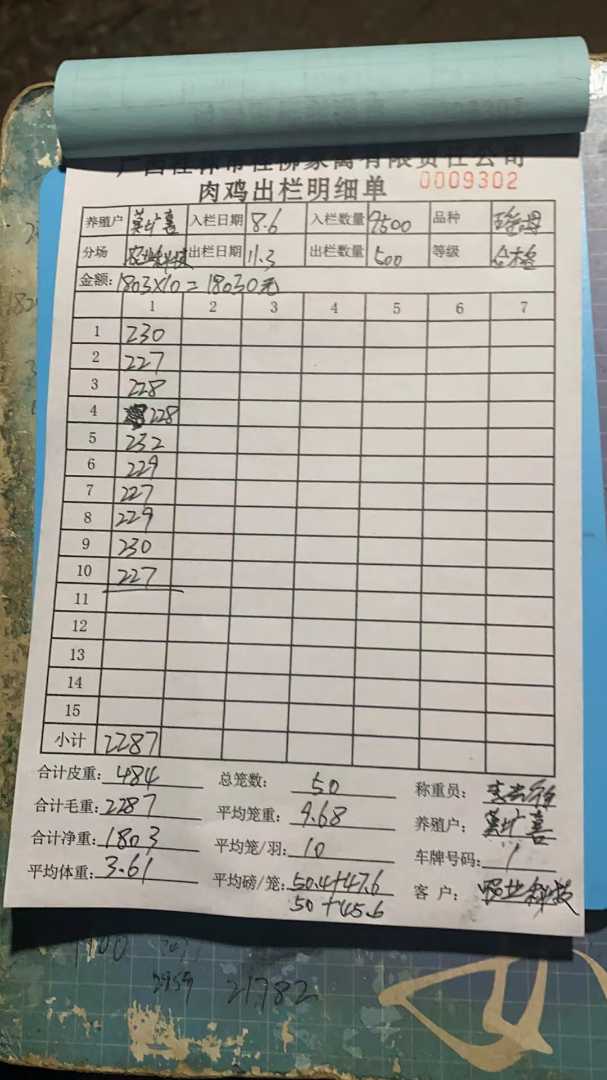 广西桂林市桂柳家禽有限责任公司
肉鸡出栏明细单 0009302
养殖户 莫广喜 入栏日期 8.6 入栏数量 9500 品种
分场 农业科技 出栏日期 11.3 出栏数量 500 等级 合格
金额: 1803×10=18030元
1 2 3 4 5 6 7
1 230
2 227
3 228
4 228
5 232
6 229
7 227
8 229
9 230
10 227
11
12
13
14
15
小计 2287
合计皮重: 484 总笼数: 50 称重员:
合计毛重: 2287 平均笼重: 9.68 养殖户: 莫广喜
合计净重: 1803 平均笼/羽: 10 车牌号码: /
平均体重: 3.61 平均磅/笼: 50.4+47.6 客 户: 农业科技
50+45.6
2959 21782